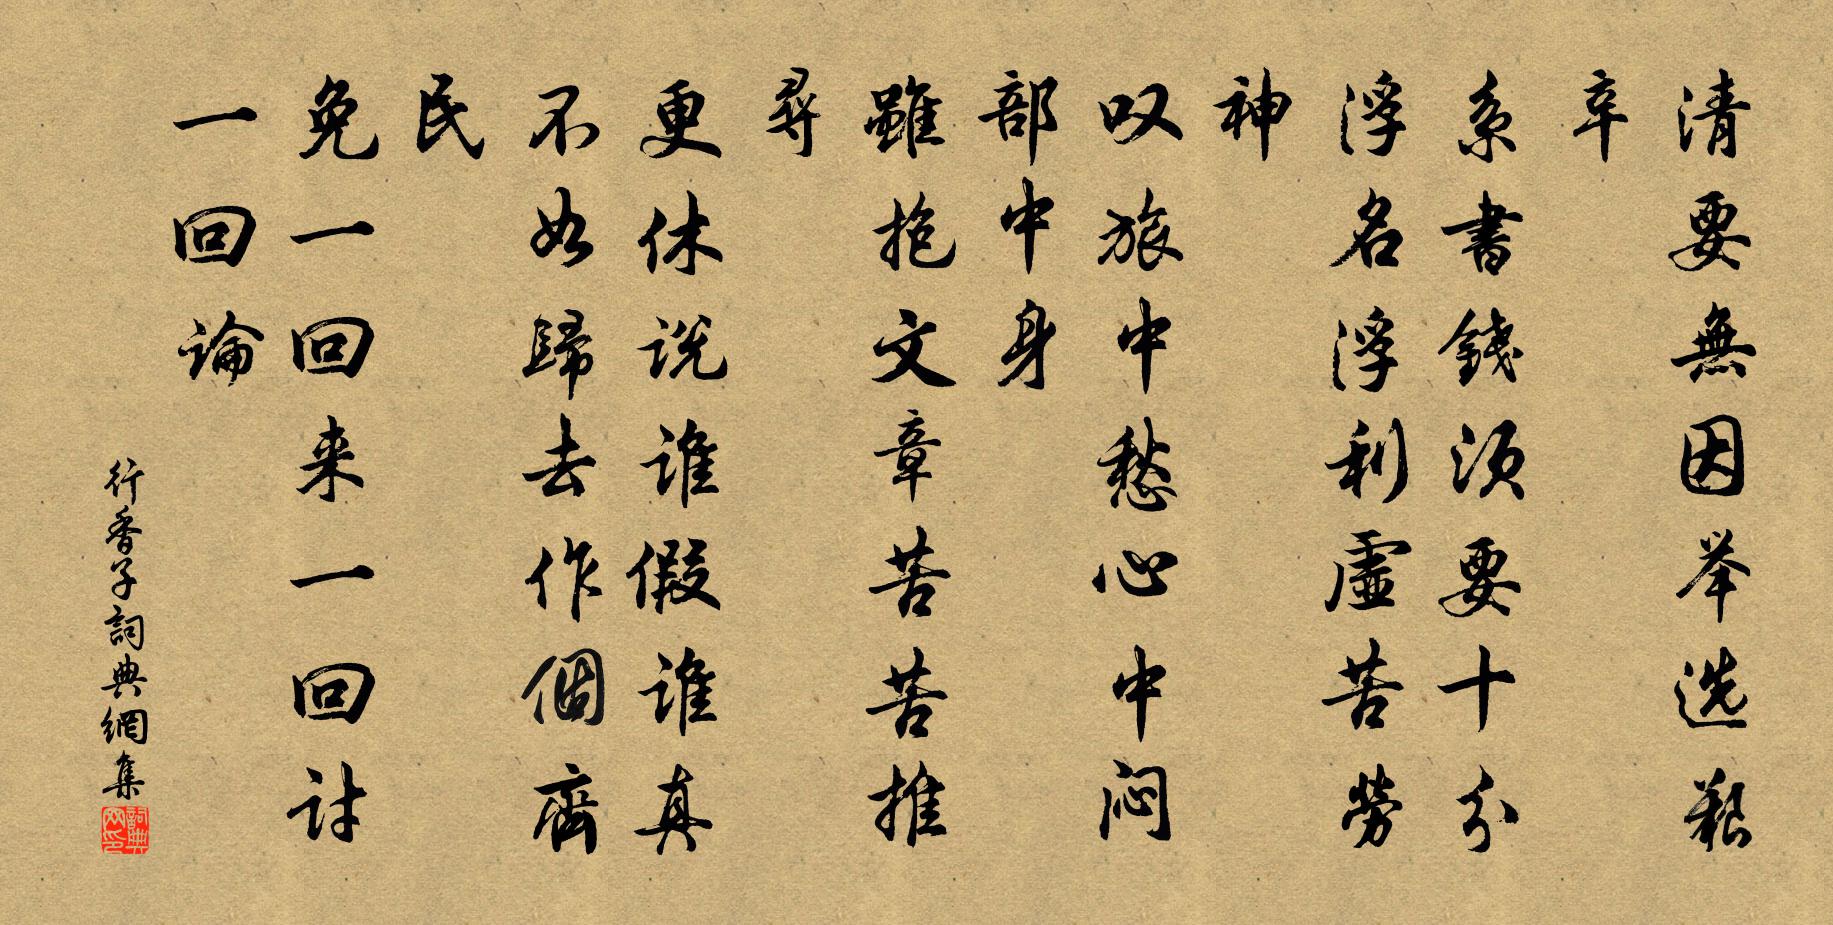 清要無因举选艱
辛
系書錢須要十分
浮名浮利虛苦勞
神
叹旅中愁心中闷
部中身
雖抱文章苦苦推
尋
更休说谁假谁真
不如歸去作個齊
民
免一回来一回討
一回論
行香子詞典網集
詞典网印